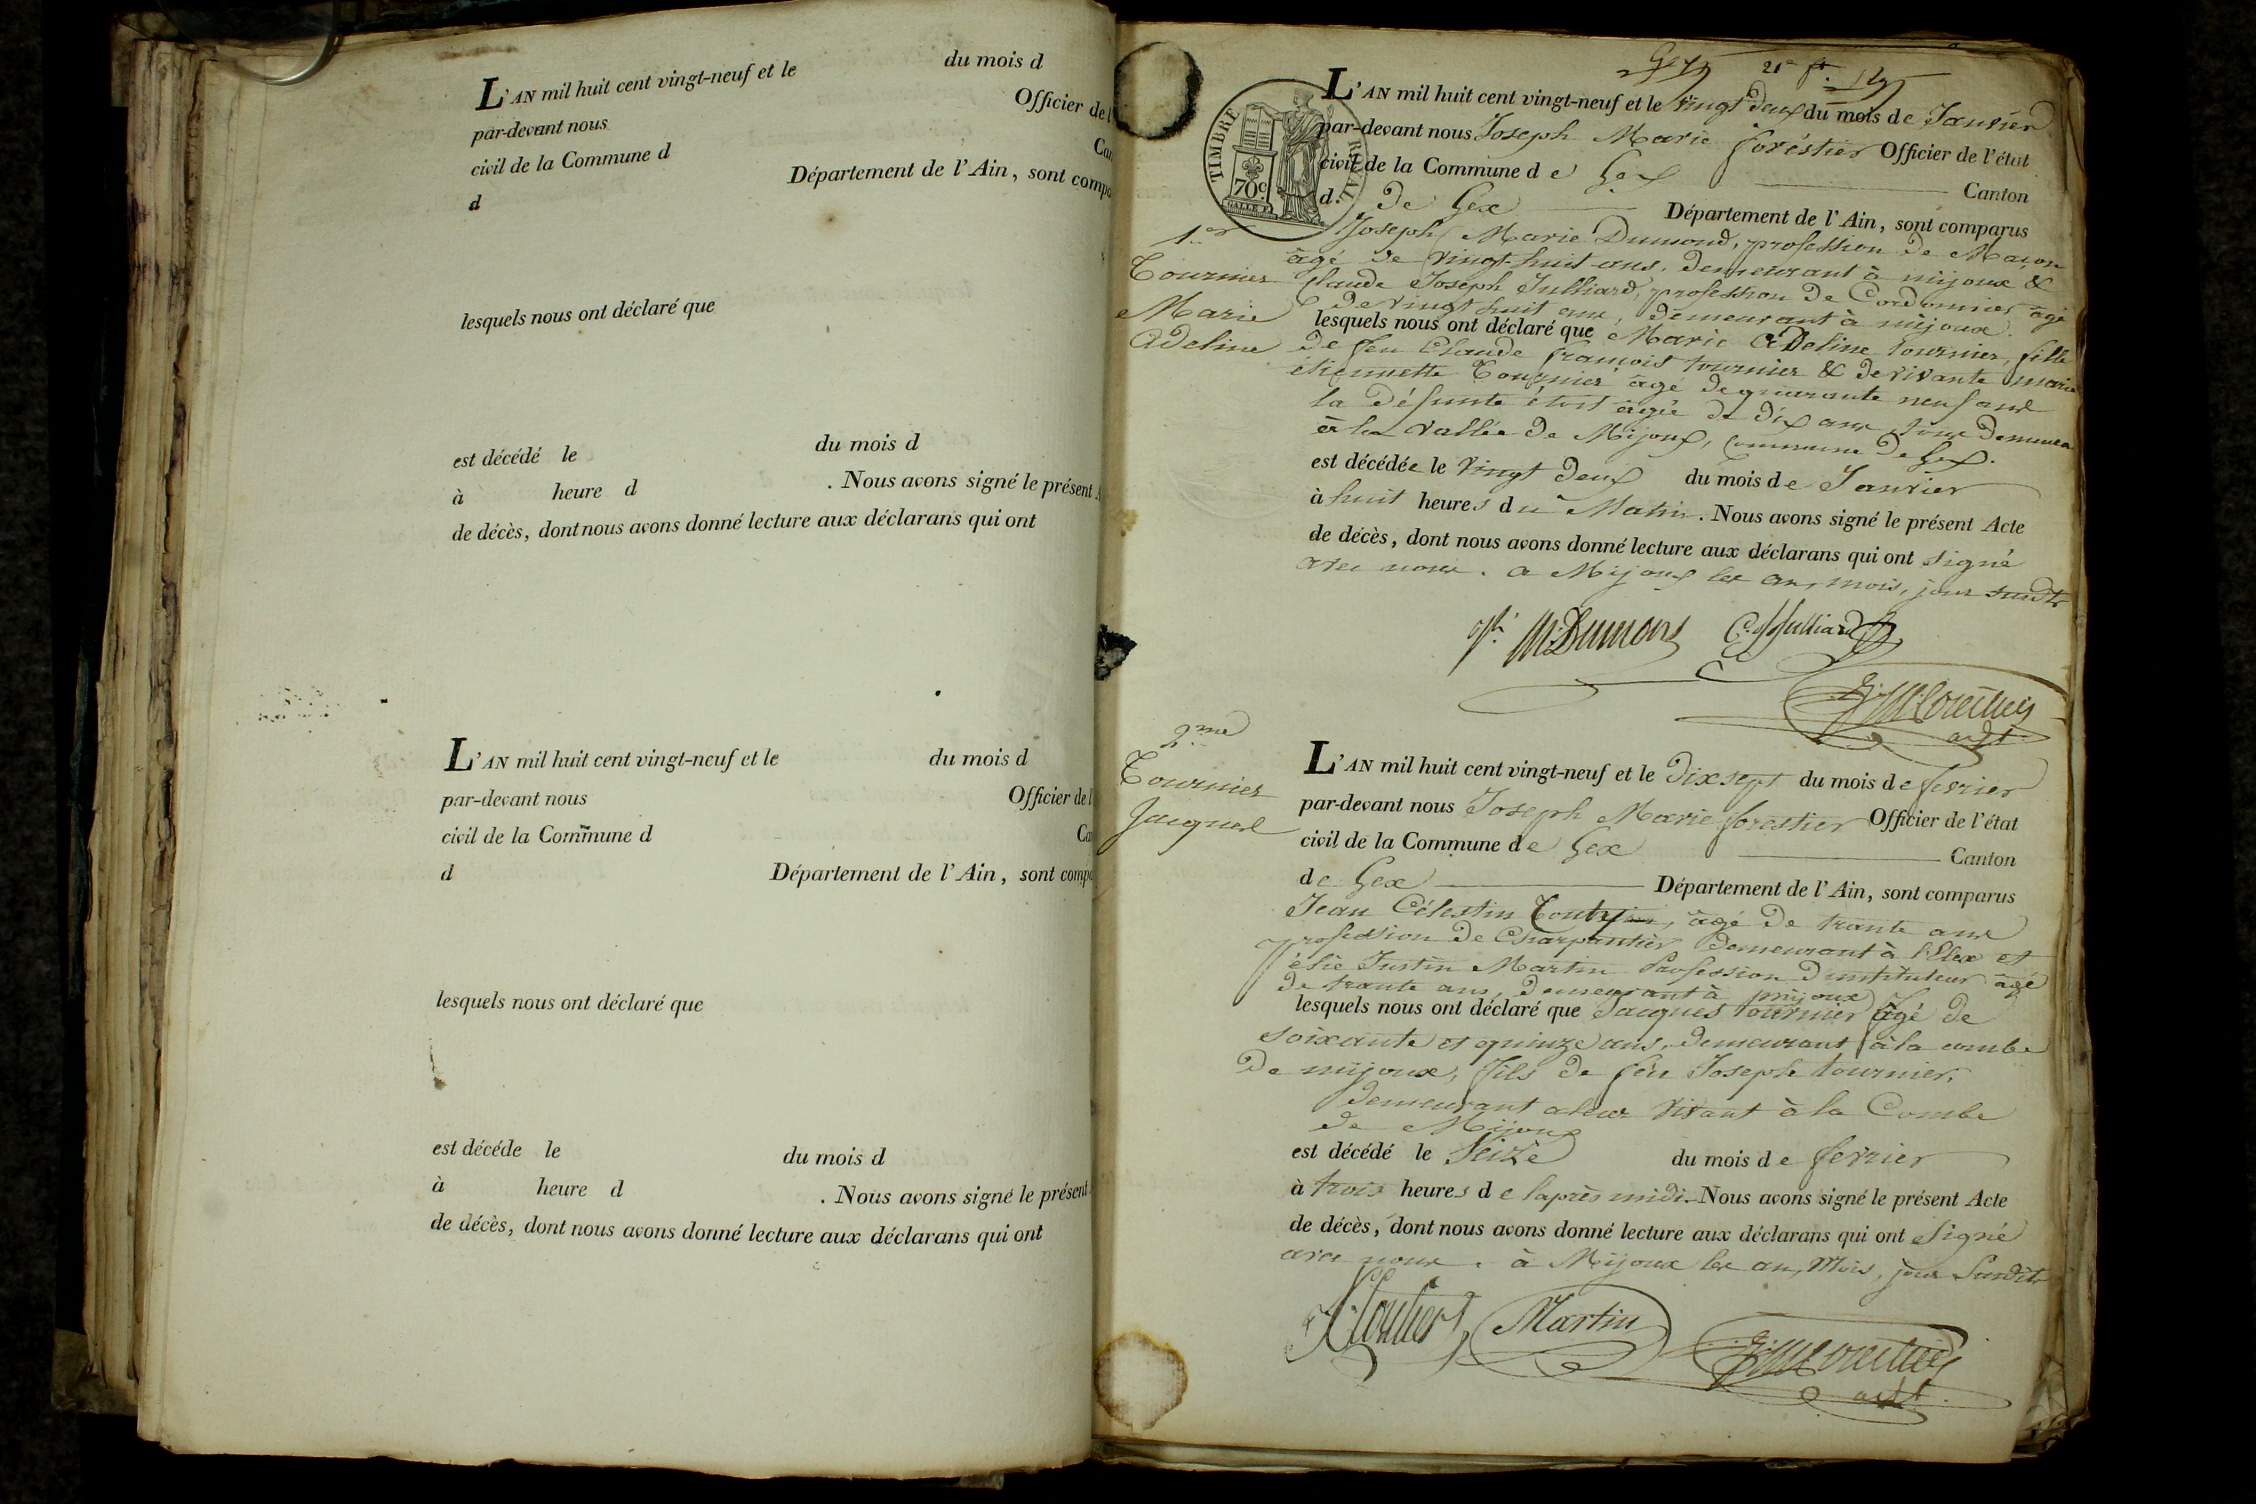 L'AN mil huit cent vingt-neuf et le du mois d
par-devant nous Officier de l
civil de la Commune d Can
d Département de l'Ain, sont compa
lesquels nous ont déclaré que
est décédé le du mois d
à heure d . Nous avons signé le présent A
de décès, dont nous avons donné lecture aux déclarans qui ont
L'AN mil huit cent vingt-neuf et le du mois d
par-devant nous Officier de l
civil de la Commune d Ca
d Département de l'Ain, sont compa
lesquels nous ont déclaré que
est décéde le du mois d
à heure d . Nous avons signé le présent
de décès, dont nous avons donné lecture aux déclarans qui ont
TIMBRE ROYAL
70c.
1er
Tournier
Marie
Adeline
L'AN mil huit cent vingt-neuf et le vingt deux du mois de Janvier
par-devant nous Joseph Marie forestier Officier de l'état
civil de la Commune de Gex Canton
d. de Gex Département de l'Ain, sont comparus
Joseph Marie Dumond, profession de Maçon
âgé de vingt huit ans, demeurant à mijoux &
Claude Joseph Julliard, profession de Cordonnier âgé
de vingt huit ans, demeurant à mijoux.
lesquels nous ont déclaré que Marie Adeline tournier, fille
de feu Claude françois tournier & de vivante marie
étiennette Tournier âgé de quarante neuf ans
la défunte étoit âgée de dix ans, tous demeura
à la vallée de Mijoux, Commune de Gex.
est décédée le vingt deux du mois de Janvier
à huit heures du Matin. Nous avons signé le présent Acte
de décès, dont nous avons donné lecture aux déclarans qui ont signé
avec nous. a Mijoux les an, mois, jour susdits
M. Dumond C. J. Julliard
adjt
2.me
Tournier
Jacques
L'AN mil huit cent vingt-neuf et le Dix sept du mois de fevrier
par-devant nous Joseph Marie forestier Officier de l'état
civil de la Commune de Gex Canton
de Gex Département de l'Ain, sont comparus
Jean Célestin âgé de trante ans
profession de Charpantier demeurant à lElex et
élie Justin Martin Profession d'instituteur âgé
de trante ans, demeurant à mijoux
lesquels nous ont déclaré que Jacques tournier âgé de
soixante et quinze ans, demeurant à la combe
de mijoux, fils de feu Joseph tournier,
demeurant aleur vivant à la Combe
de Mijoux
est décédé le Seize du mois de fevrier
à trois heures de laprès midi. Nous avons signé le présent Acte
de décès, dont nous avons donné lecture aux déclarans qui ont signé
avec nous. à Mijoux les an, Mois, jour Susdits
Martin
adjt.